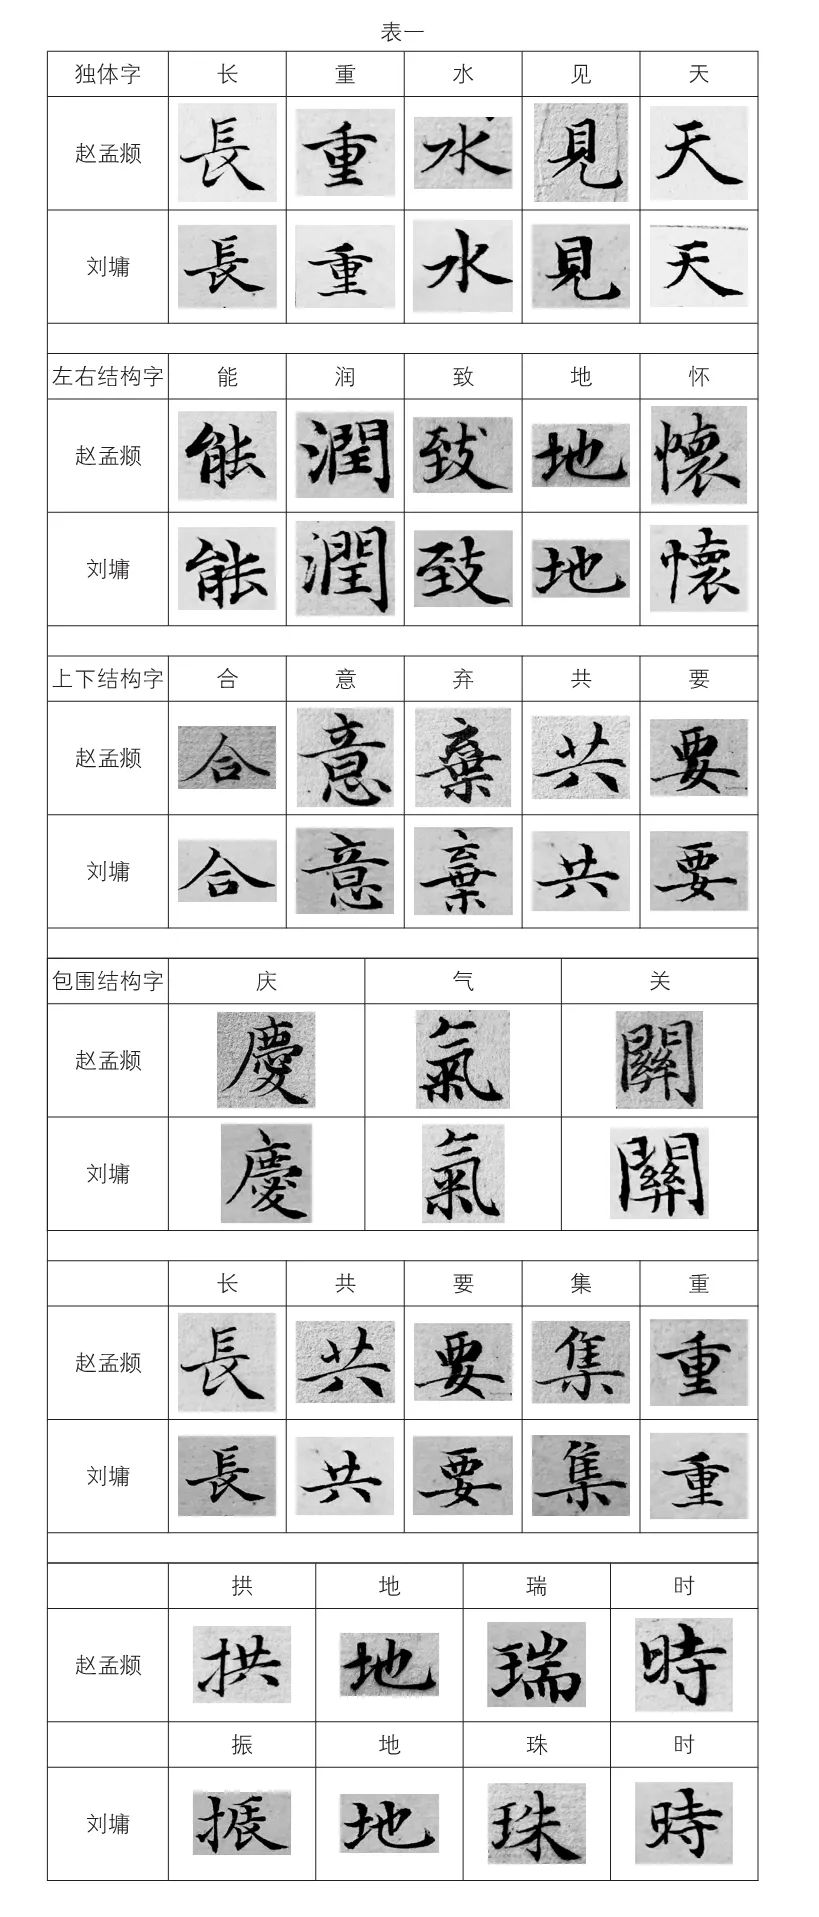 表一
独体字 长 重 水 见 天
赵孟頫 長 重 水 見 天
刘墉 長 重 水 見 天
左右结构字 能 润 致 地 怀
赵孟頫 能 潤 致 地 懷
刘墉 能 潤 致 地 懷
上下结构字 合 意 弃 共 要
赵孟頫 合 意 棄 共 要
刘墉 合 意 棄 共 要
包围结构字 庆 气 关
赵孟頫 慶 氣 關
刘墉 慶 氣 關
长 共 要 集 重
赵孟頫 長 共 要 集 重
刘墉 長 共 要 集 重
拱 地 瑞 时
赵孟頫 拱 地 瑞 時
振 地 珠 时
刘墉 振 地 珠 時